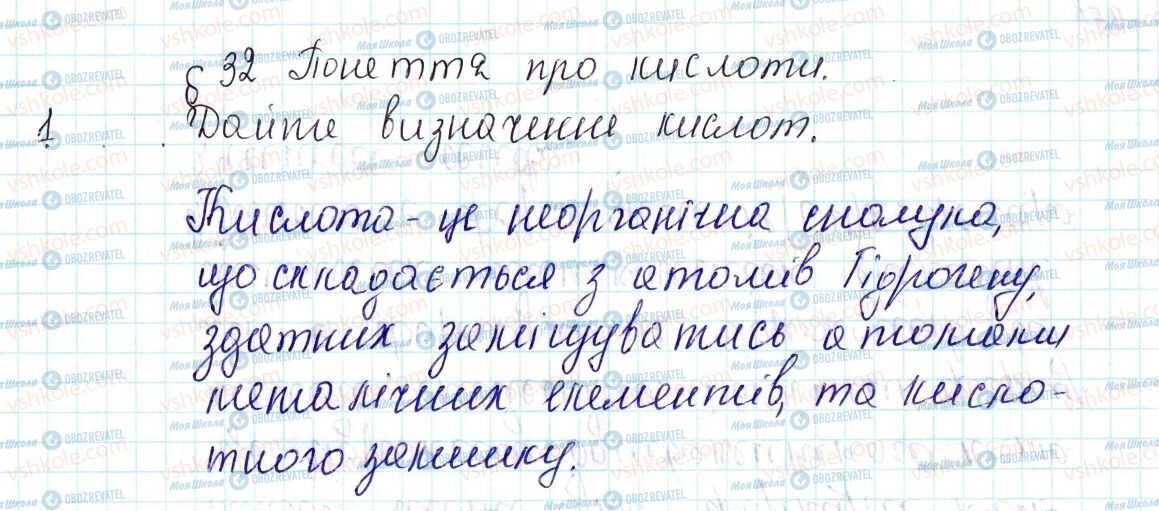 § 32 Поняття про кислоти.
1. Дайте визначення кислот.
Кислота - це неорганічна сполука,
що складається з атомів Гідрогену,
здатних заміщуватись атомами
металічних елементів, та кисло-
тного залишку.